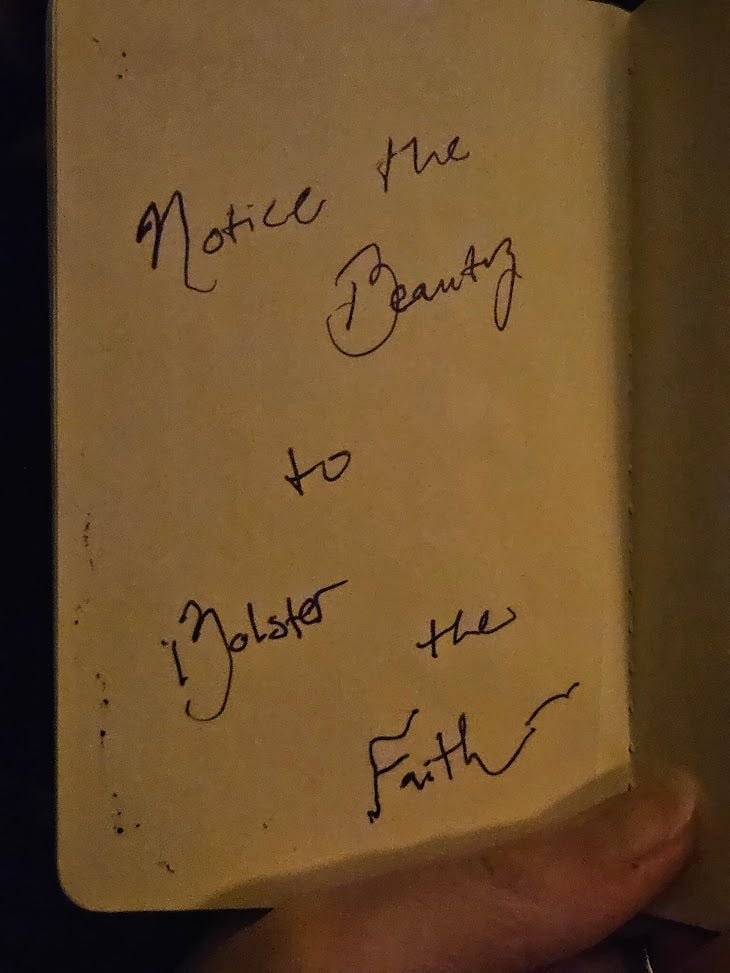 Notice the
Beauty
to
Bolster the
Faith